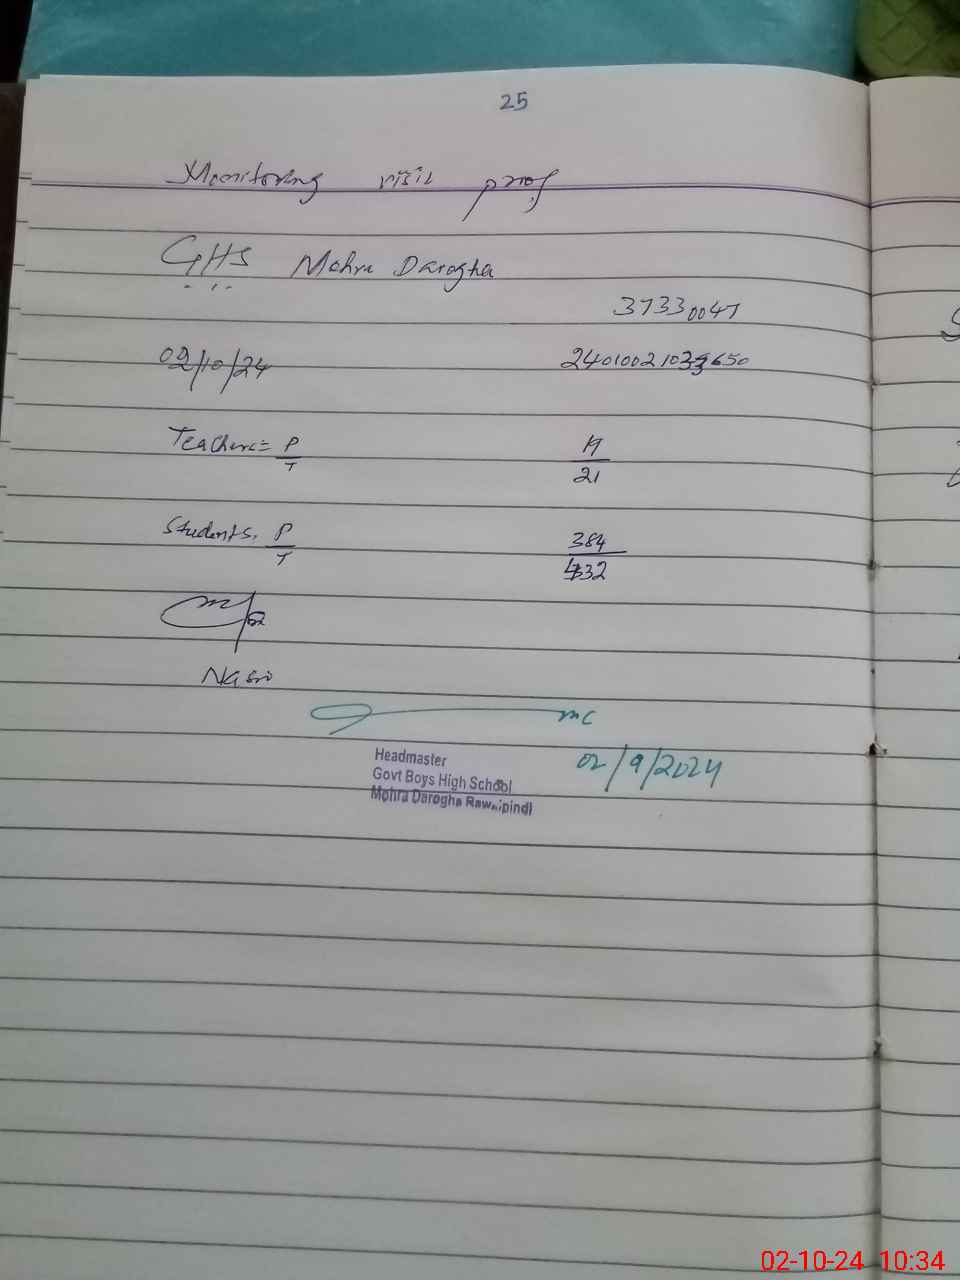 25
Monitoring visit proof
GHS Mohra Darogha
37330047
02/10/24
Teachers = P/T 19/21
Students, P/T 384/432
Headmaster
Govt Boys High School
Mohra Darogha Rawalpindi
02/9/2024
02-10-24 10:34